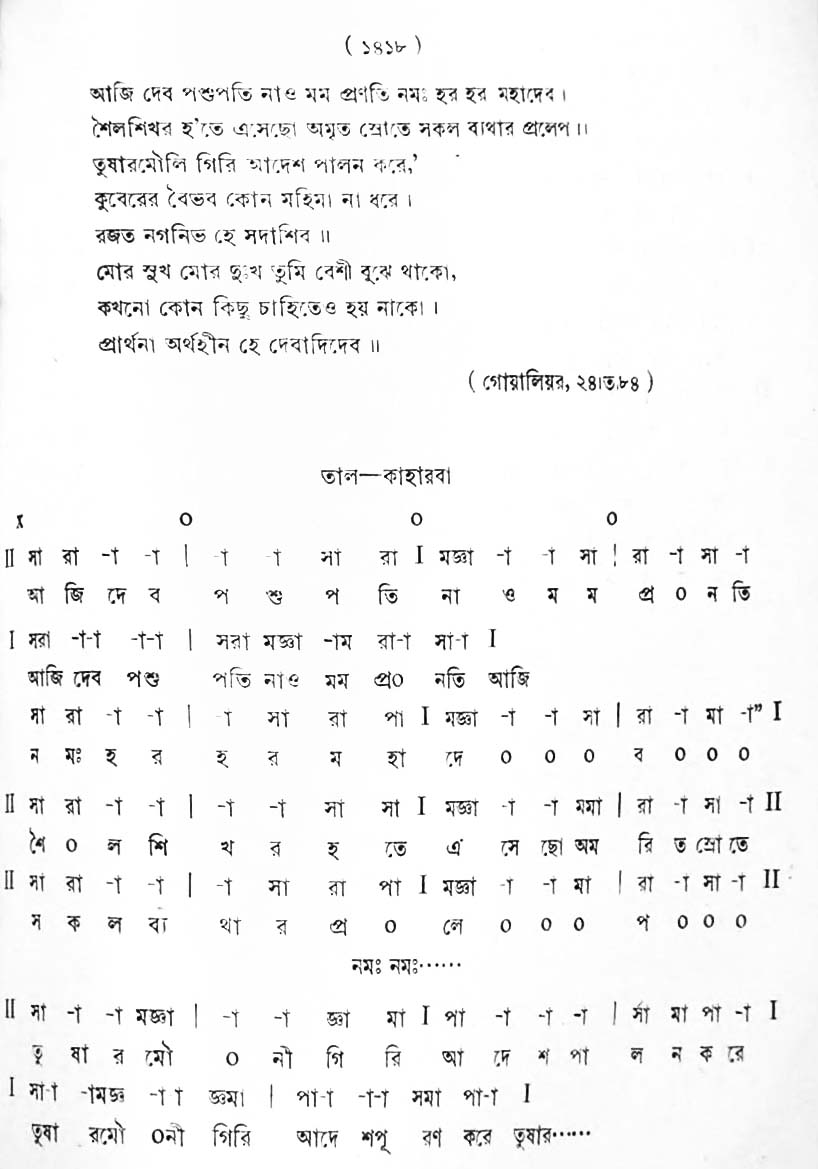 ( ১৪১৮ )
আজি দেব পশুপতি নাও মম প্রণতি নমঃ হর হর মহাদেব।
শৈলশিখর হ'তে এসেছো অমৃত স্রোতে সকল ব্যথার প্রলেপ॥
তুষারমৌলি গিরি আদেশ পালন করে,'
কুবেরের বৈভব কোন মহিমা না ধরে।
রজত নগনিভ হে সদাশিব॥
মোর সুখ মোর দুঃখ তুমি বেশী বুঝে থাকো,
কখনো কোন কিছু চাহিতেও হয় নাকো।
প্রার্থনা অর্থহীন হে দেবাদিদেব॥
( গোয়ালিয়র, ২৪।৩.৮৪ )
তাল—কাহারবা
x o o o
II সা রা -া -া | -া -া সা রা I মজ্ঞা -া -া সা | রা -া সা -া
আ জি দে ব প শু প তি না ও ম ম প্র ০ ন তি
I সরা -া-া -া-া | সরা মজ্ঞা -াম রা-া সা-া I
আজি দেব পশু পতি নাও মম প্র০ নতি আজি
সা রা -া -া | -া সা রা পা I মজ্ঞা -া -া সা | রা -া মা -া" I
ন মঃ হ র হ র ম হা দে ০ ০ ০ ব ০ ০ ০
II সা রা -া -া | -া -া সা সা I মজ্ঞা -া -া মমা | রা -া সা -া II
শৈ ০ ল শি খ র হ তে এ সে ছো অম রি ত স্রো তে
II সা রা -া -া | -া সা রা পা I মজ্ঞা -া -া মা | রা -া সা -া II
স ক ল ব্য থা র প্র ০ লে ০ ০ ০ প ০ ০ ০
নমঃ নমঃ······
II সা -া -া মজ্ঞা | -া -া জ্ঞা মা I পা -া -া -া | র্সা মা পা -া I
তু ষা র মৌ ০ লী গি রি আ দে শ পা ল ন ক রে
I সা-া -ামজ্ঞ -া া জ্ঞমা | পা-া -া-া সমা পা-া I
তুষা রমৌ ০লী গিরি আদে শপূ রণ করে তুষার······